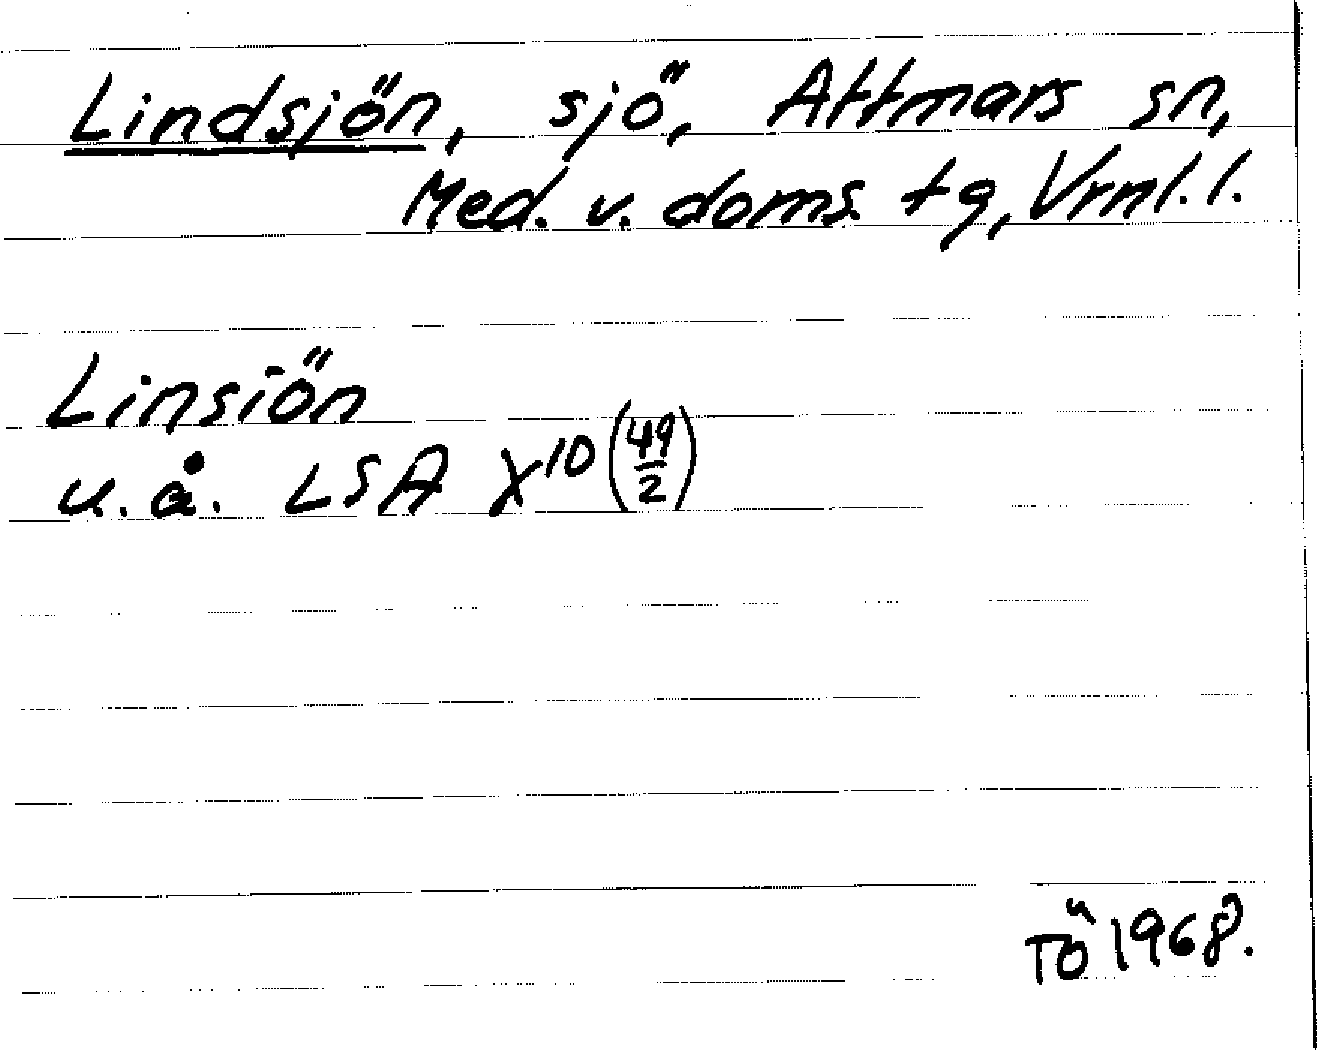 Lindsjön, sjö, Attmars sn,
Med. v. doms. tg, Vrnl. l.
Linsiön
u. å. LSA X¹⁰ (49/2)
TÖ 1968.